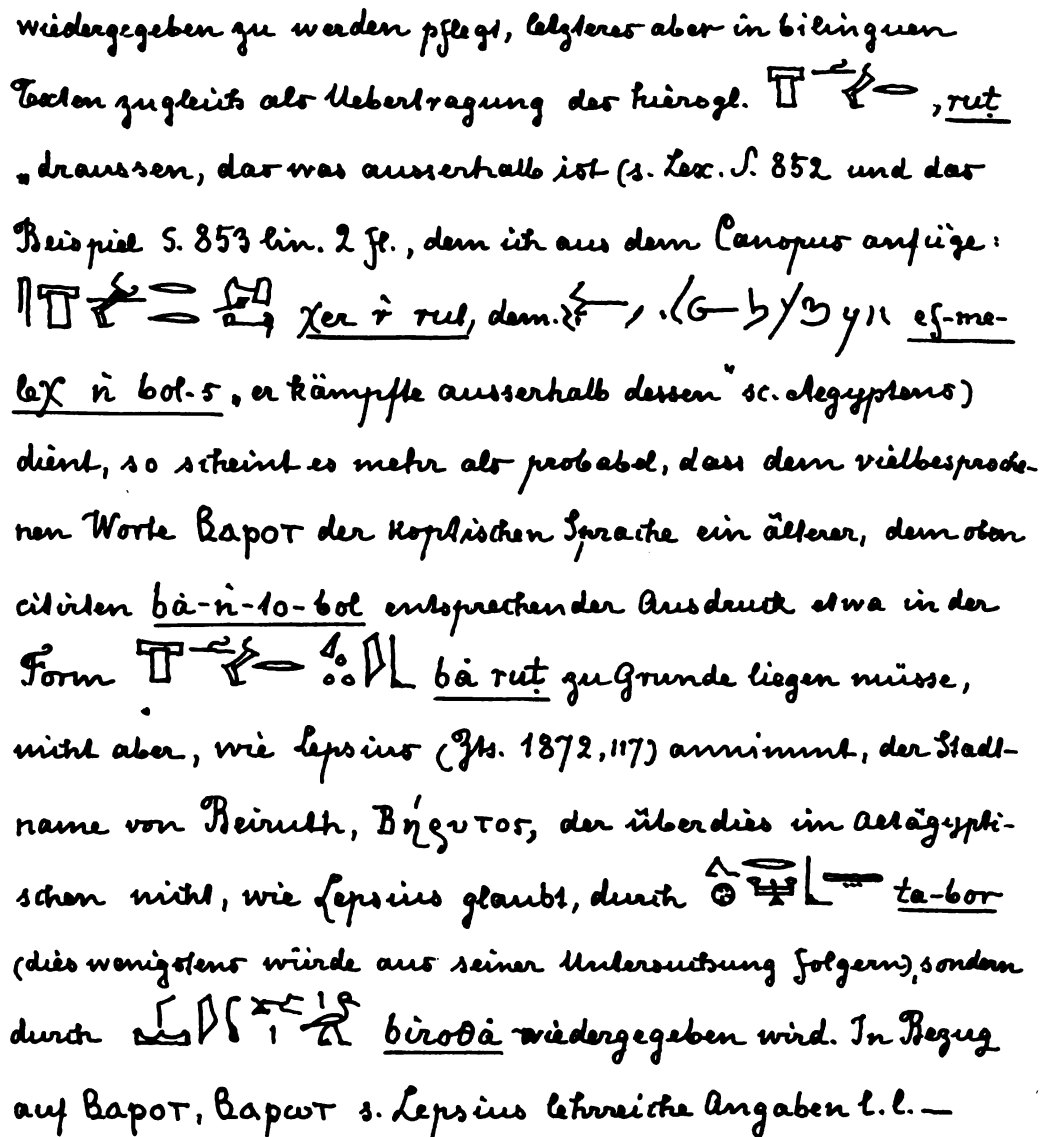 wiedergegeben zu werden pflegt, letzteres aber in bilinguen
Texten zugleich als Uebertragung des hierogl. , ruṭ
„draussen, das was ausserhalb ist (s. Lex. S. 852 und das
Beispiel S. 853 lin. 2 fl., dem ich aus dem Canopus anfüge:
χer ṙ rut, dem. ef-me-
leχ ṅ bol-s „er kämpfte ausserhalb dessen" sc. Aegyptens)
dient, so scheint es mehr als probabel, dass dem vielbesproche-
nen Worte ⲃⲁⲣⲟⲧ der koptischen Sprache ein älterer, dem oben
citirten bȧ-ṅ-to-bol entsprechender Ausdruck etwa in der
Form bȧ ruṭ zu Grunde liegen müsse,
nicht aber, wie Lepsius (Zts. 1872, 117) annimmt, der Stadt-
name von Beiruth, Βήρυτος, der überdies im Altägypti-
schen nicht, wie Lepsius glaubt, durch ta-bor
(dies wenigstens würde aus seiner Untersuchung folgern), sondern
durch biroθȧ wiedergegeben wird. In Bezug
auf ⲃⲁⲣⲟⲧ, ⲃⲁⲣⲱⲧ s. Lepsius lehrreiche Angaben l. l. —